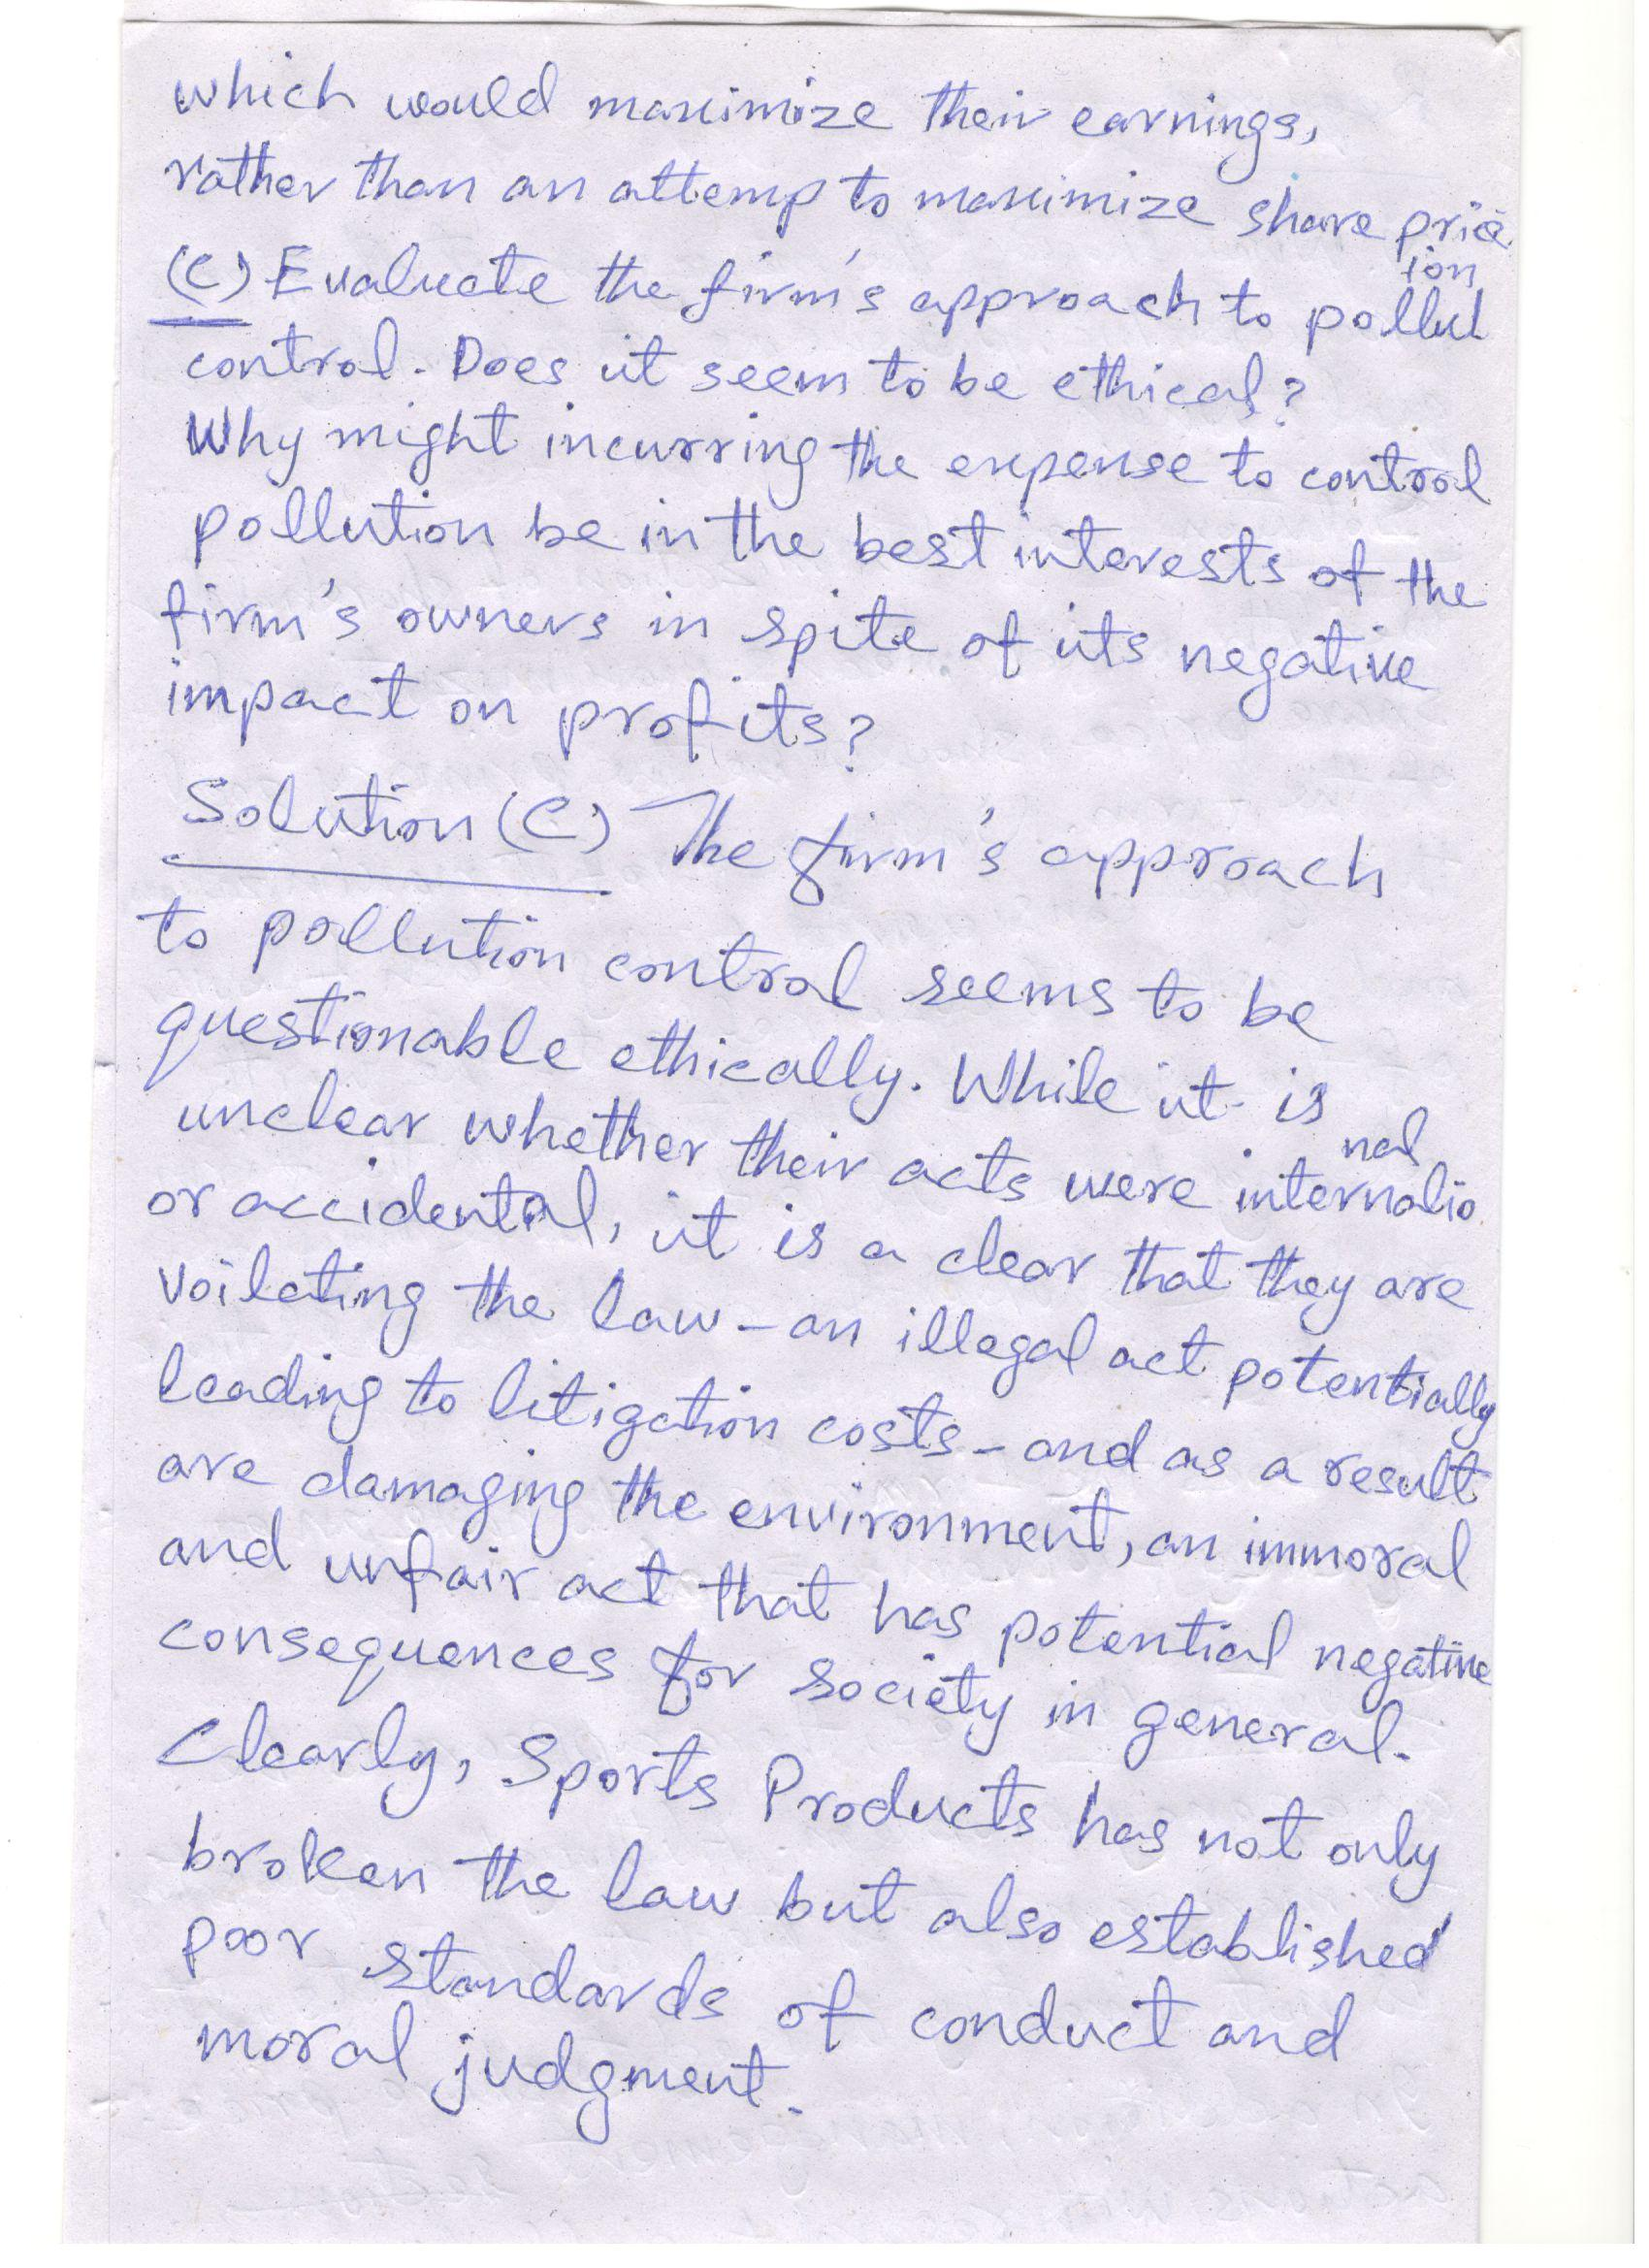 which would maximize their earnings,
rather than an attemp to maximize share price
(C) Evaluate the firm's approach to pollution
control. Does it seem to be ethical?
Why might incurring the expense to control
pollution be in the best interests of the
firm's owners in spite of its negative
impact on profits?
Solution (C) The firm's approach
to pollution control seems to be
questionable ethically. While it is
unclear whether their acts were internalional
or accidental, it is a clear that they are
voilating the law - an illegal act potentially
leading to litigation costs - and as a result
are damaging the environment, an immoral
and unfair act that has potential negative
consequences for society in general.
Clearly, Sports Products has not only
broken the law but also established
poor standards of conduct and
moral judgment.